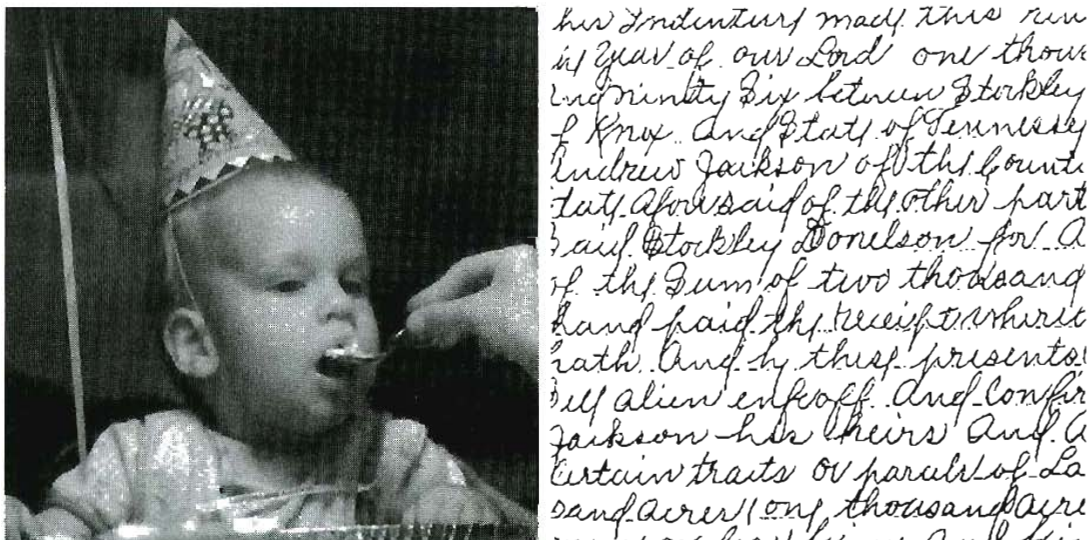 his Indenture made this
in year of our Lord one thous
ing ninety Six between Stockley
of Knox And State of Tennessey
Andrew Jackson of the Counti
tate aforesaid of the other part
Said Stockley Donelson for A
of the Sum of two thousand
hand paid the receipt wheric
hath And by these presents
Sell alien enfeoff And Confir
Jackson his heirs And A
Certain traits or parcels of La
sand acres one thousand acre